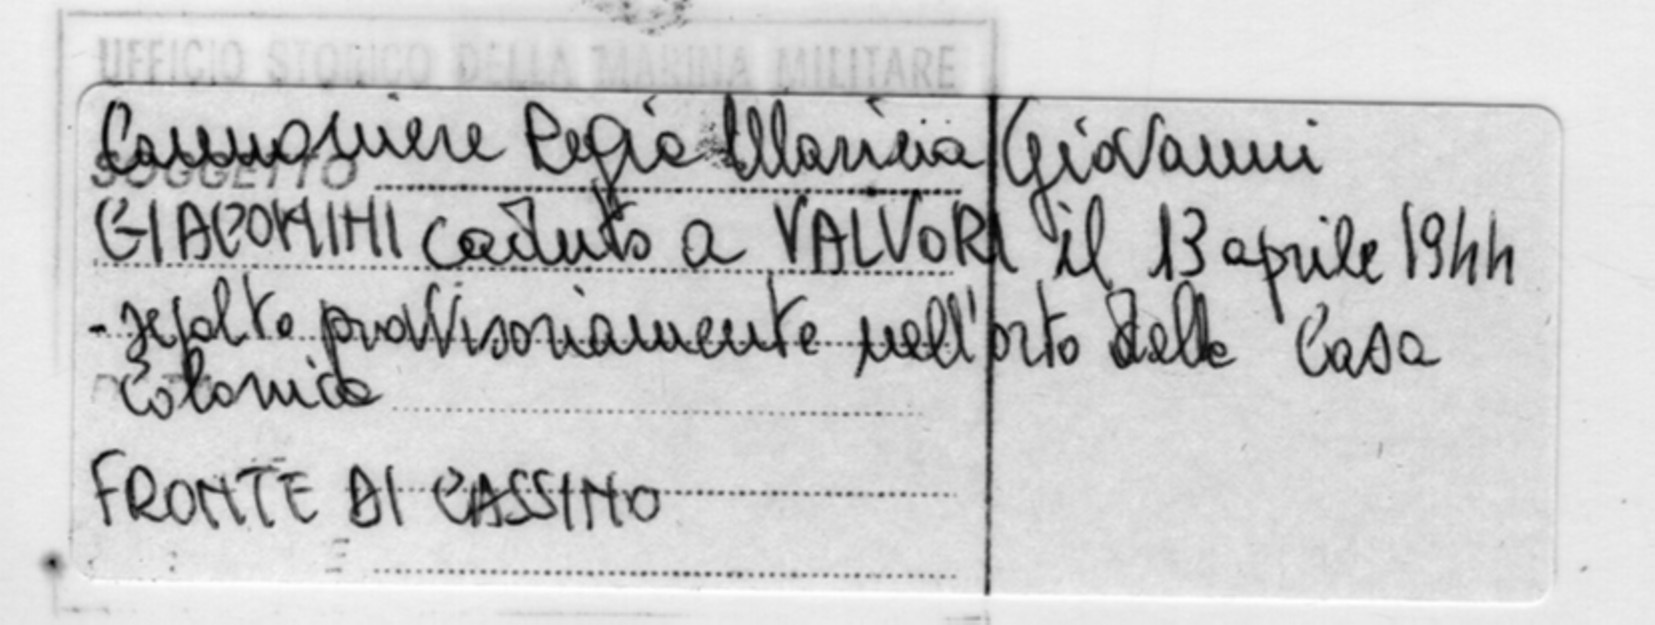 UFFICIO STORICO DELLA MARINA MILITARE
Cannoniere Regia Marina Giovanni
SOGGETTO
GIACOMINI caduto a VALVORI il 13 aprile 1944
- sepolto provvisoriamente nell'orto della Casa
Colonica
FRONTE DI CASSINO